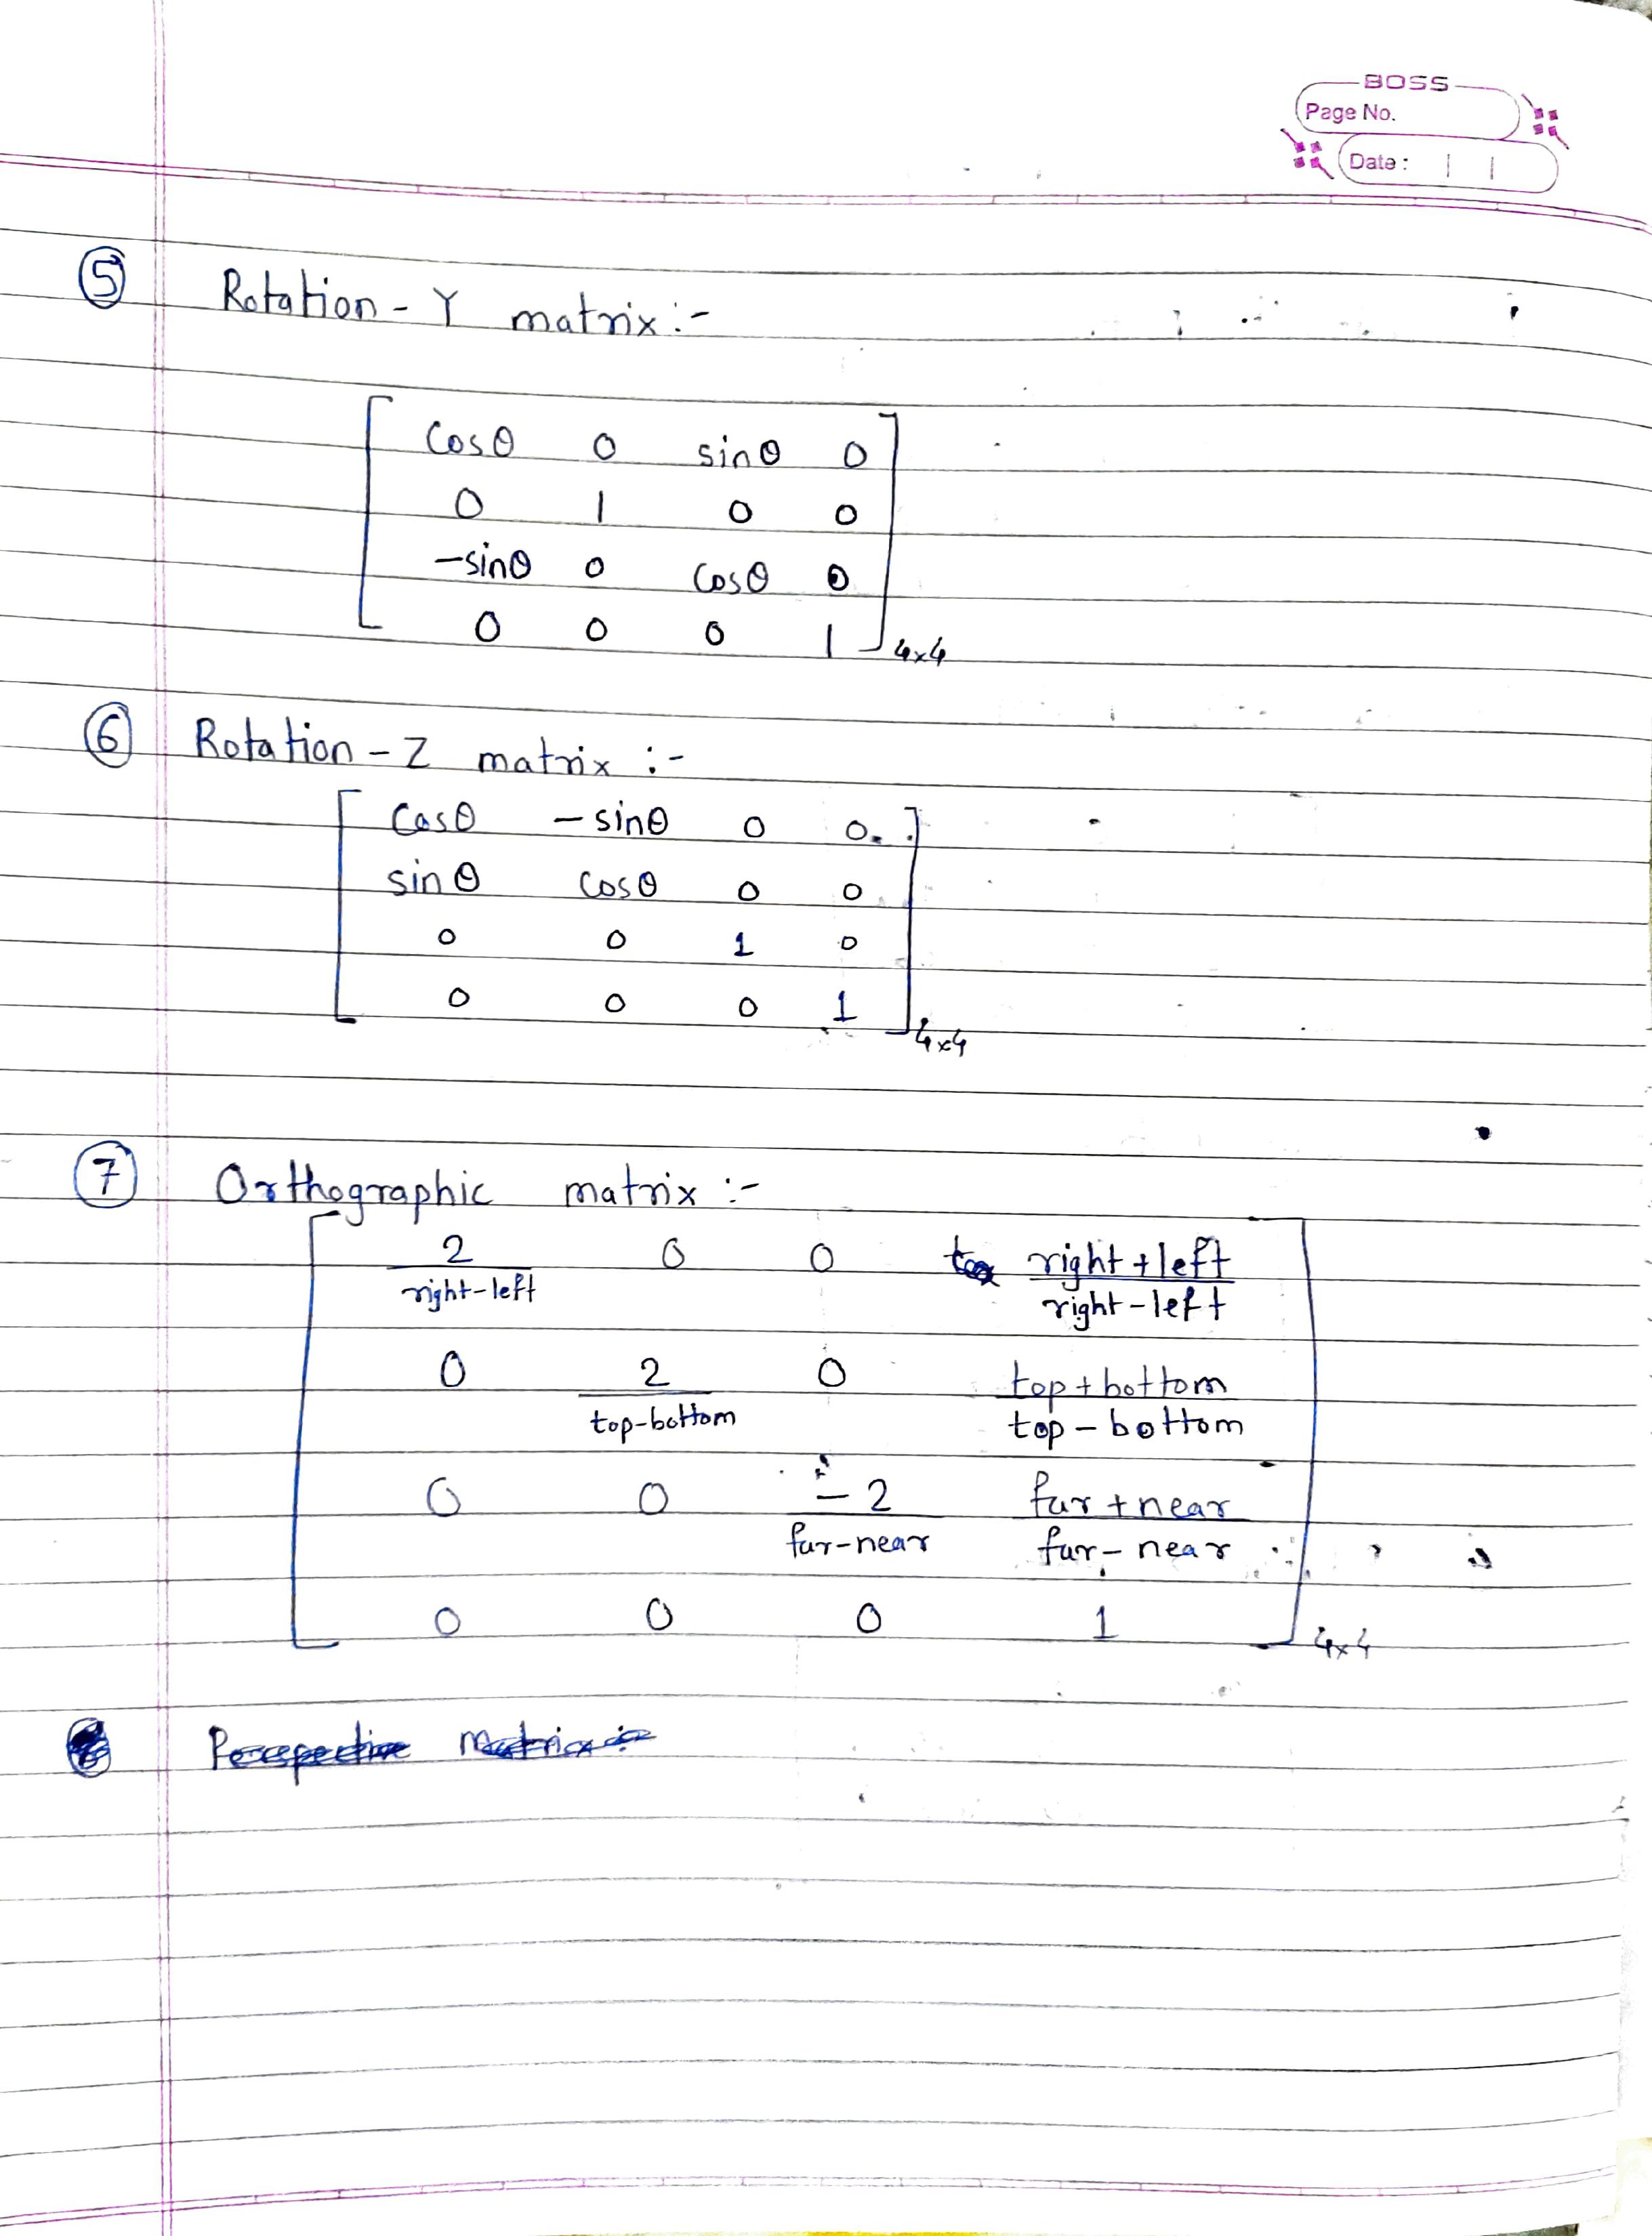 BOSS
Page No.
Date :
⑤ Rotation - Y matrix :-
cosθ 0 sinθ 0
0 1 0 0
-sinθ 0 cosθ 0
0 0 0 1
4×4
⑥ Rotation - Z matrix :-
cosθ -sinθ 0 0
sinθ cosθ 0 0
0 0 1 0
0 0 0 1
4×4
⑦ Orthographic matrix :-
2 0 0 right + left
right-left right - left
0 2 0 top + bottom
top-bottom top - bottom
0 0 -2 far + near
far-near far - near
0 0 0 1
4×4
Perspective Matrix :-